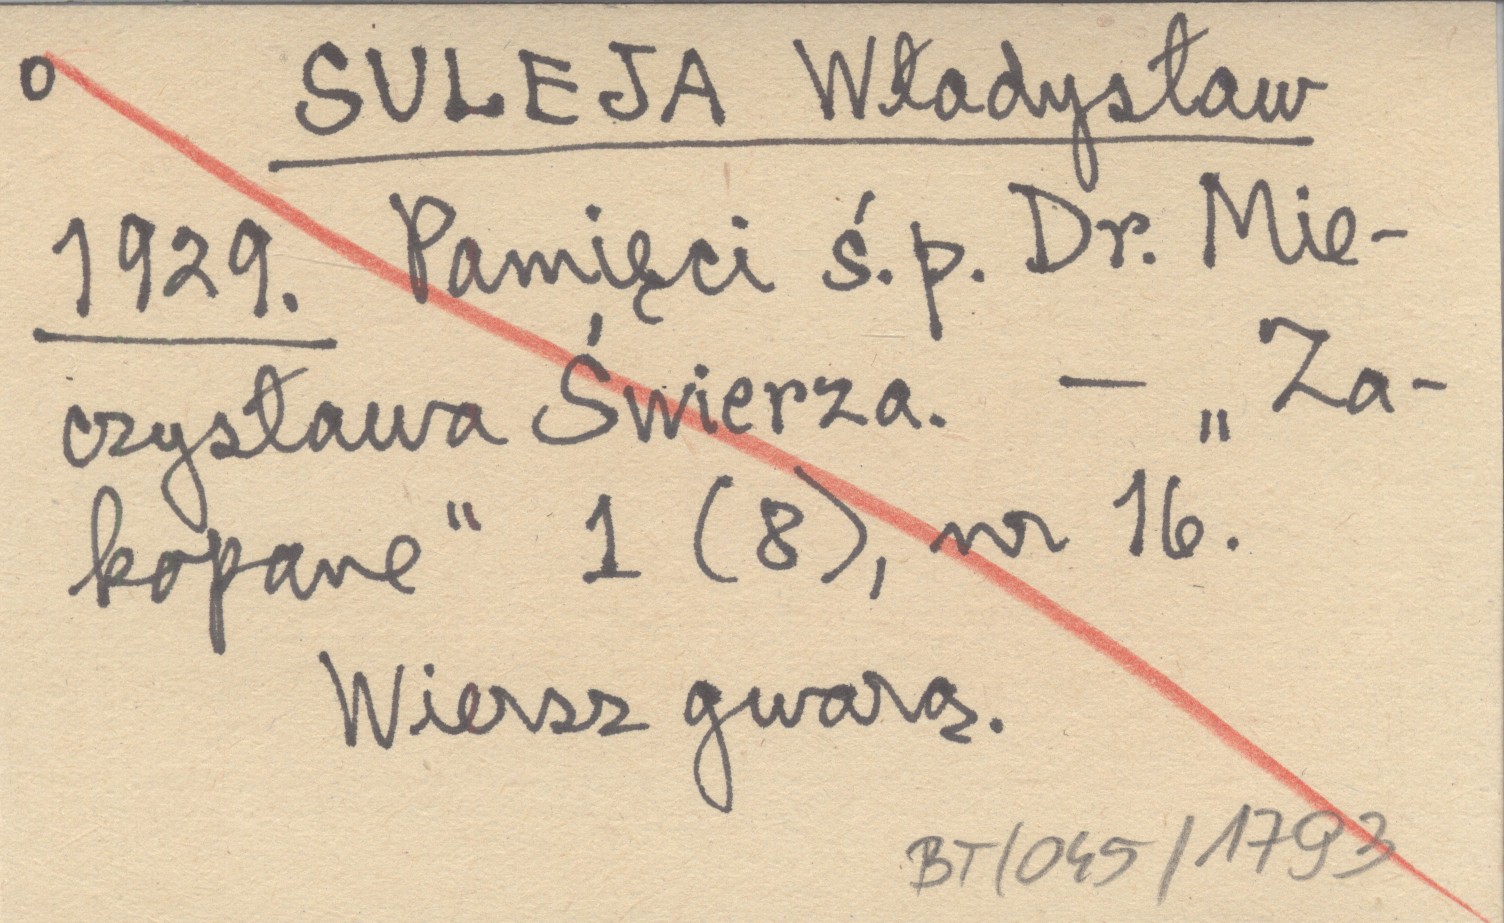 o SULEJA Władysław
1929. Pamięci ś.p. Dr. Mie-
czysława Świerza. — „Za-
kopane“ 1 (8), nr 16.
Wiersz gwarą.
BT/045/1793